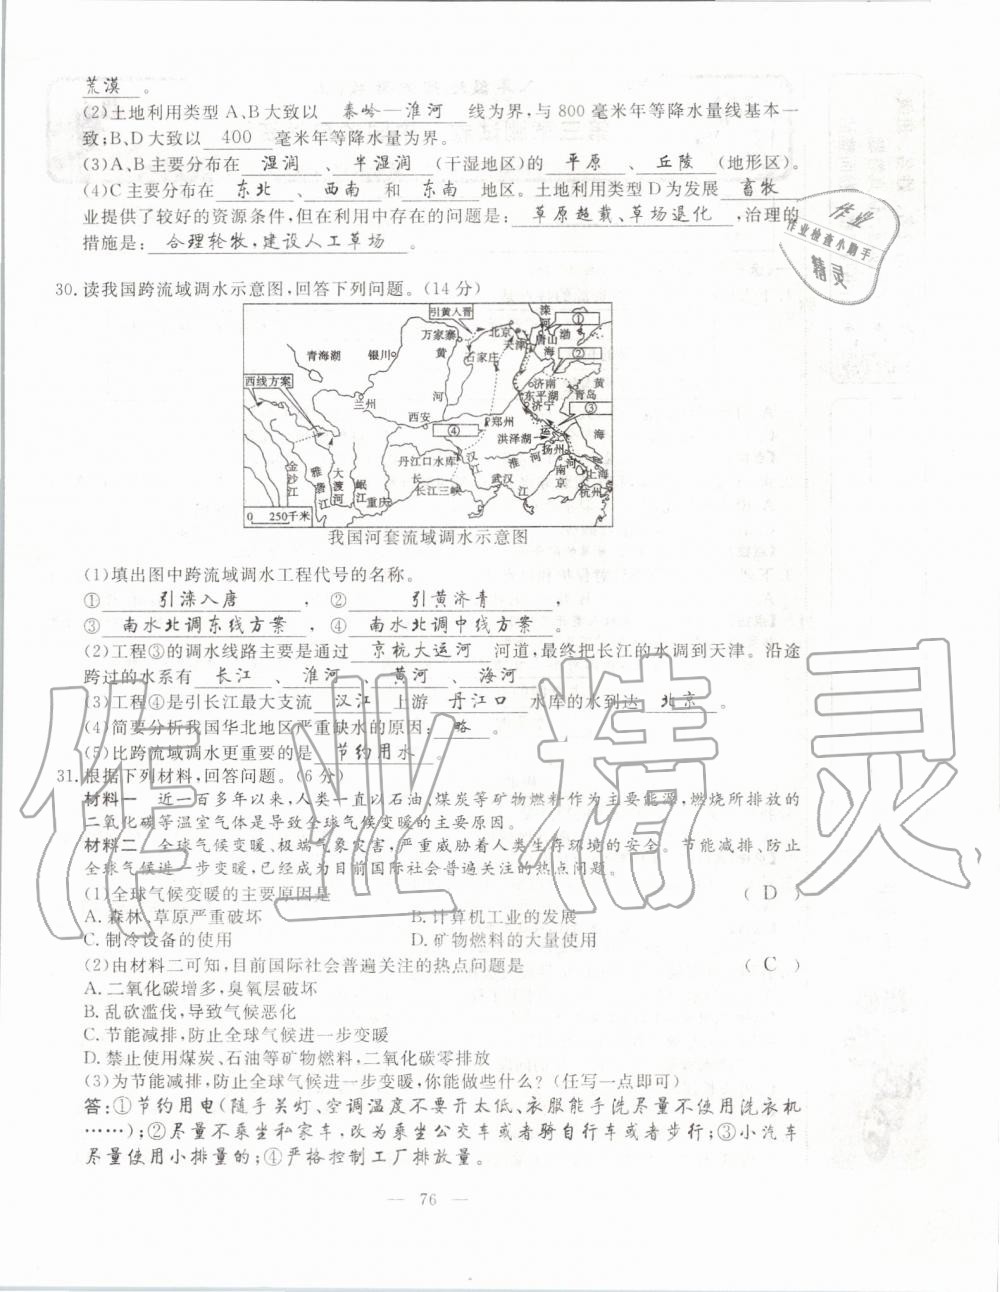 荒漠。
(2)土地利用类型 A、B 大致以 秦岭—淮河 线为界,与 800 毫米年等降水量线基本一
致;B、D 大致以 400 毫米年等降水量为界。
(3)A、B 主要分布在 湿润、半湿润(干湿地区)的 平原、丘陵(地形区)。
(4)C 主要分布在 东北、西南 和 东南 地区。土地利用类型 D 为发展 畜牧
业提供了较好的资源条件,但在利用中存在的问题是:草原超载、草场退化,治理的
措施是:合理轮牧,建设人工草场。
作业
作业检查小助手
精灵
30. 读我国跨流域调水示意图,回答下列问题。(14 分)
引黄入晋
滦河
①
万家寨
北京
唐山
渤海
天津
青海湖
银川
黄河
石家庄
②
西线方案
济南
黄海
兰州
东平湖
青岛
济宁
③
西安
郑州
④
运河
洪泽湖
扬州
丹江口水库
汉江
淮河
金沙江
雅砻江
大渡河
岷江
南京
上海
长江三峡
武汉
长江
杭州
重庆
0 250千米
我国河套流域调水示意图
(1)填出图中跨流域调水工程代号的名称。
① 引滦入唐, ② 引黄济青,
③ 南水北调东线方案, ④ 南水北调中线方案。
(2)工程③的调水线路主要是通过 京杭大运河 河道,最终把长江的水调到天津。沿途
跨过的水系有 长江、淮河、黄河、海河
(3)工程④是引长江最大支流 汉江 上游 丹江口 水库的水到达 北京。
(4)简要分析我国华北地区严重缺水的原因: 略。
(5)比跨流域调水更重要的是 节约用水。
31. 根据下列材料,回答问题。(6 分)
材料一 近一百多年以来,人类一直以石油、煤炭等矿物燃料作为主要能源,燃烧所排放的
二氧化碳等温室气体是导致全球气候变暖的主要原因。
材料二 全球气候变暖、极端气象灾害,严重威胁着人类生存环境的安全。节能减排、防止
全球气候进一步变暖,已经成为目前国际社会普遍关注的热点问题。
(1)全球气候变暖的主要原因是 ( D )
A. 森林、草原严重破坏 B. 计算机工业的发展
C. 制冷设备的使用 D. 矿物燃料的大量使用
(2)由材料二可知,目前国际社会普遍关注的热点问题是 ( C )
A. 二氧化碳增多,臭氧层破坏
B. 乱砍滥伐,导致气候恶化
C. 节能减排,防止全球气候进一步变暖
D. 禁止使用煤炭、石油等矿物燃料,二氧化碳零排放
(3)为节能减排,防止全球气候进一步变暖,你能做些什么?(任写一点即可)
答:①节约用电(随手关灯、空调温度不要开太低、衣服能手洗尽量不使用洗衣机
……);②尽量不乘坐私家车,改为乘坐公交车或者骑自行车或者步行;③小汽车
尽量使用小排量的;④严格控制工厂排放量。
— 76 —
作业精灵